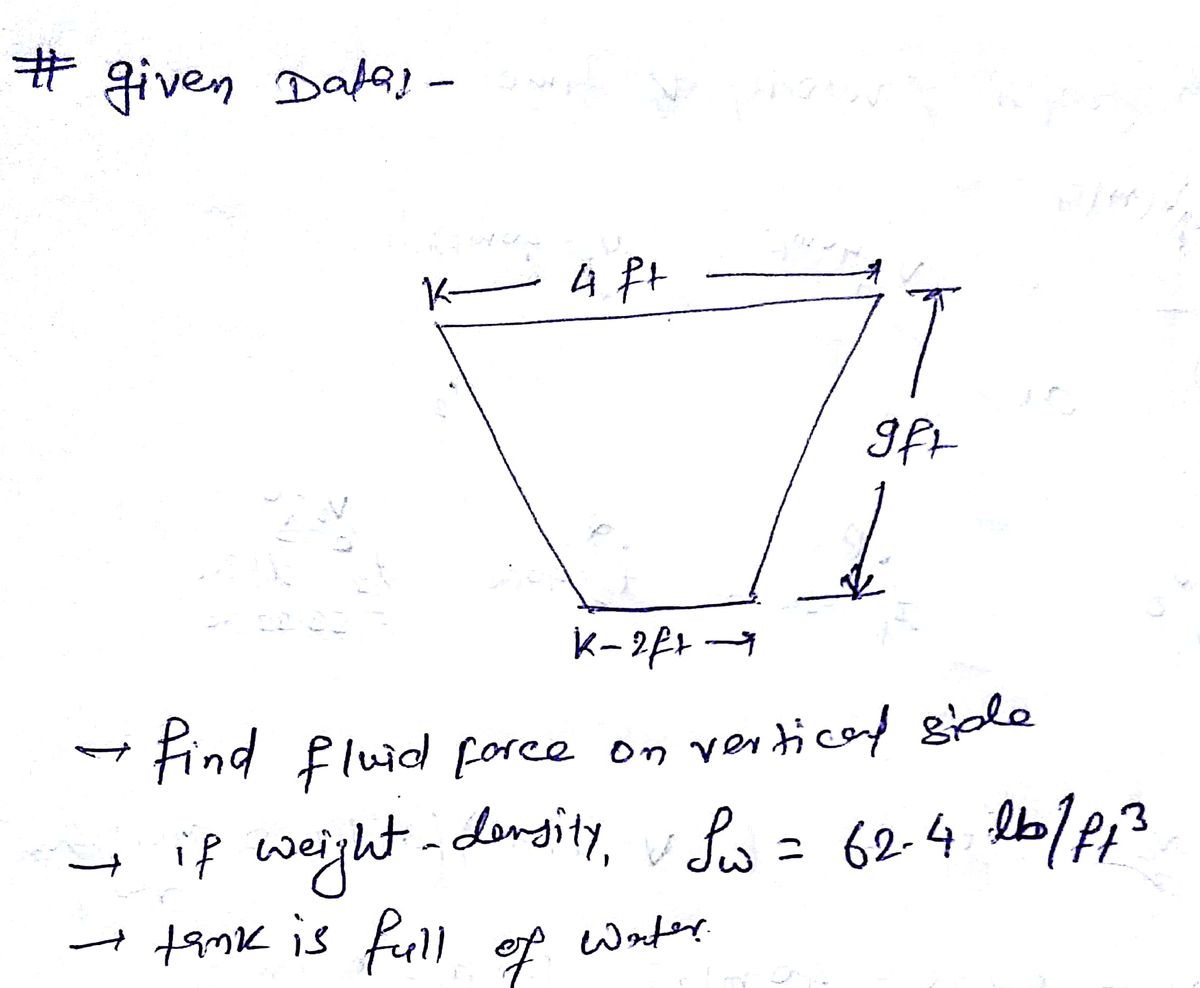 # given Data:-
4 ft
9ft
2ft
→ find fluid force on vertical side
→ if weight-density, ρw = 62.4 lb/ft³
→ tank is full of water.